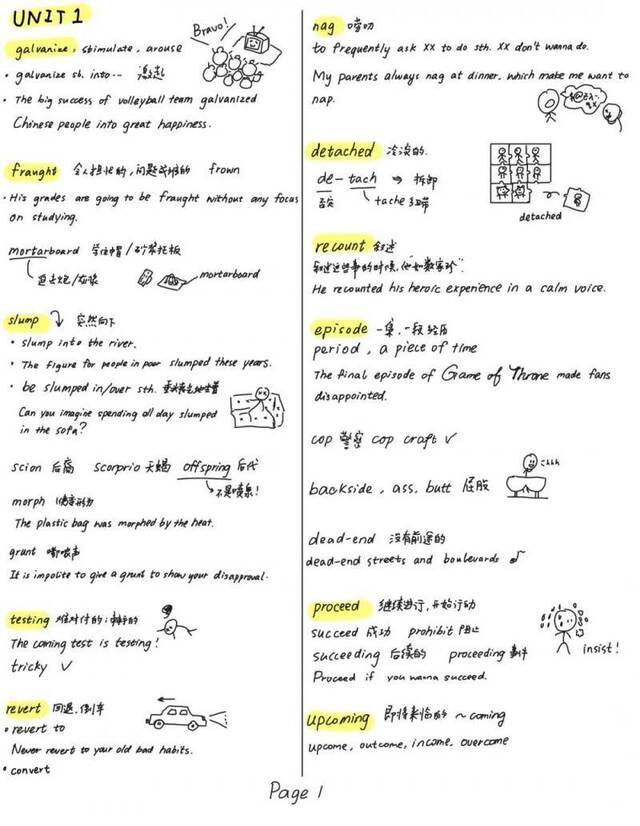 UNIT 1
galvanize, stimulate, arouse
Bravo!
• galvanize sb. into… 激起
• The big success of volleyball team galvanized
Chinese people into great happiness.
fraught 令人担忧的,问题成堆的 frown
• His grades are going to be fraught without any focus
on studying.
mortarboard 学位帽/砂浆托板
迫击炮/灰浆
mortarboard
slump 突然向下
• slump into the river.
• The figure for people in poor slumped these years.
• be slumped in/over sth.
Can you imagine spending all day slumped
in the sofa?
scion 后裔 scorprio 天蝎 offspring 后代
不是喷泉!
morph 使变形
The plastic bag was morphed by the heat.
grunt 嘟哝声
It is impolite to give a grunt to show your disapproval.
testing 难对付的;棘手的
The coming test is testing!
tricky ✓
revert 回退,倒车
• revert to
Never revert to your old bad habits.
• convert
nag 唠叨
to frequently ask xx to do sth. xx don't wanna do.
My parents always nag at dinner, which make me want to
nap.
detached 冷漠的.
de-tach ⇒ 拆卸
否定
tache 扣襻
detached
recount 叙述
叙述这些事的时候,他"如数家珍".
He recounted his heroic experience in a calm voice.
episode 一集,一段经历
period, a piece of time
The final episode of Game of Throne made fans
disappointed.
cop 警察 cop craft ✓
backside, ass, butt 屁股
dead-end 没有前途的
dead-end streets and boulevards ♪
proceed 继续进行,开始行动
succeed 成功 prohibit 阻止
succeeding 后续的 proceeding 事件
Proceed if you wanna succeed.
insist!
upcoming 即将来临的 ~coming
upcome, outcome, income, overcome
Page 1